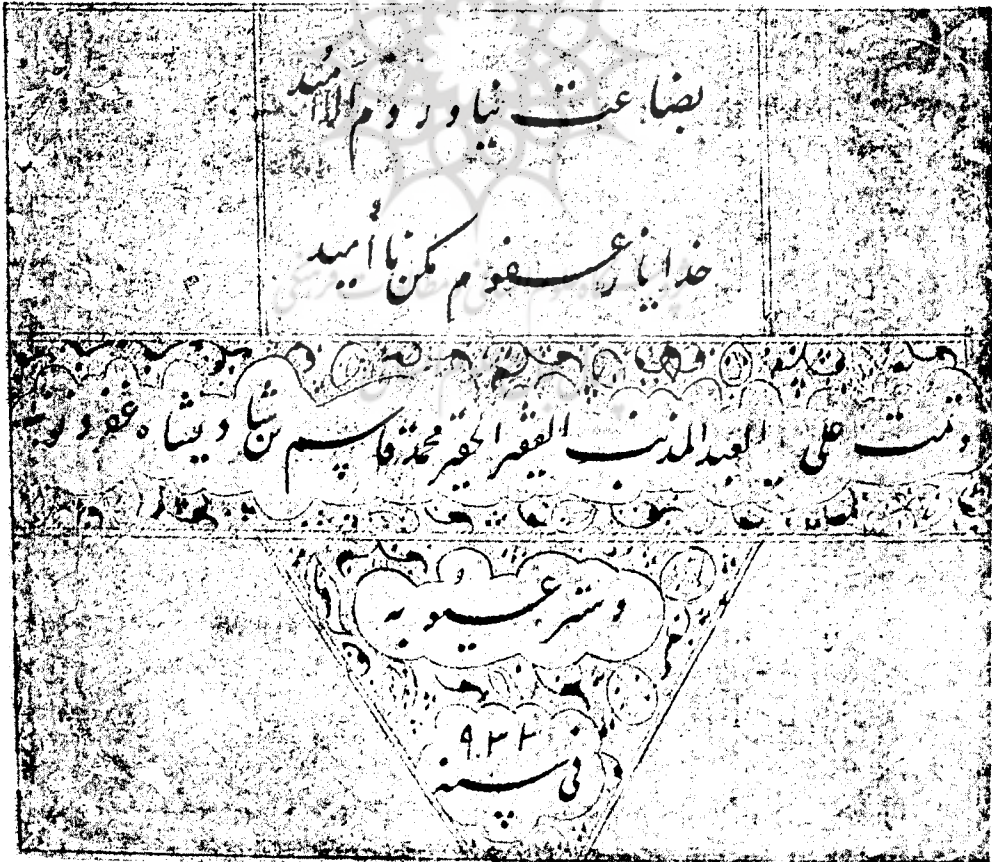 بضاعت نیاوردم الا امید
خدایا ز عفوم مکن ناامید
وتمت علی ید العبد المذنب الفقیر الحقیر محمد قاسم بن شادیشاه غفر ذنوبه
وستر عیوبه
فی سنه ۹۳۳